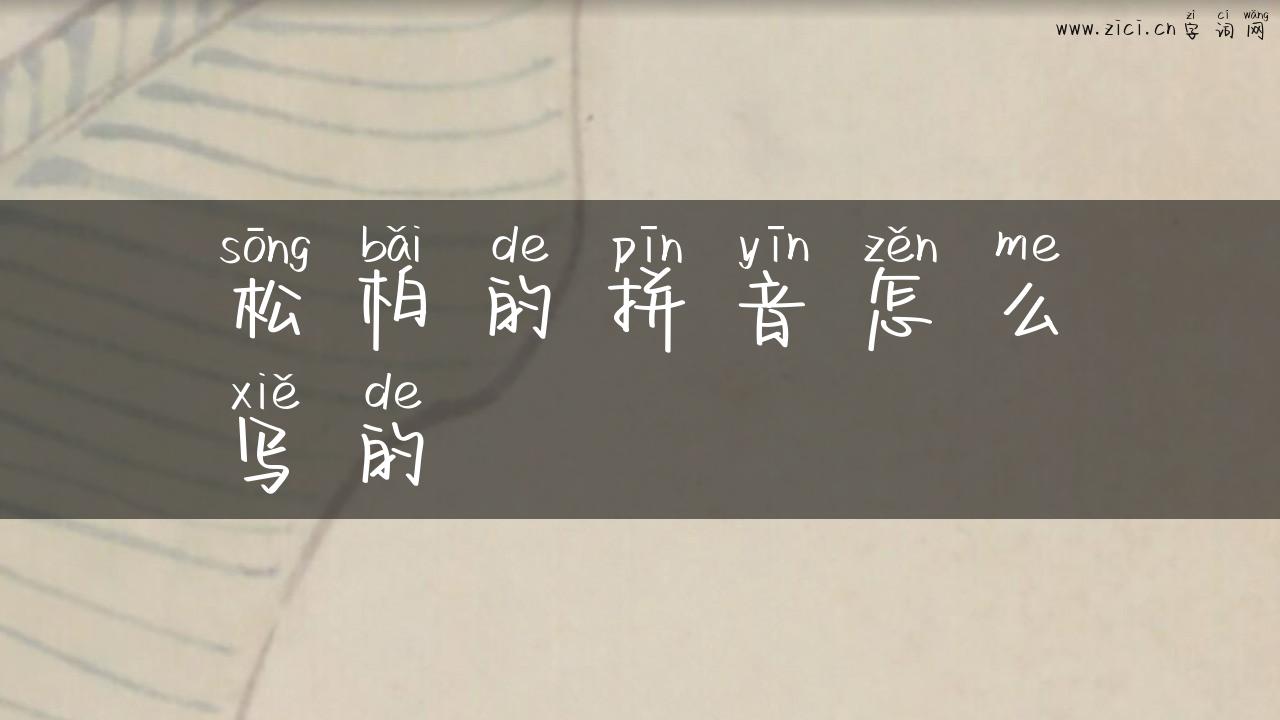 zì cí wǎng
www.zici.cn 字 词 网
sōng bǎi de pīn yīn zěn me
松 柏 的 拼 音 怎 么
xiě de
写 的